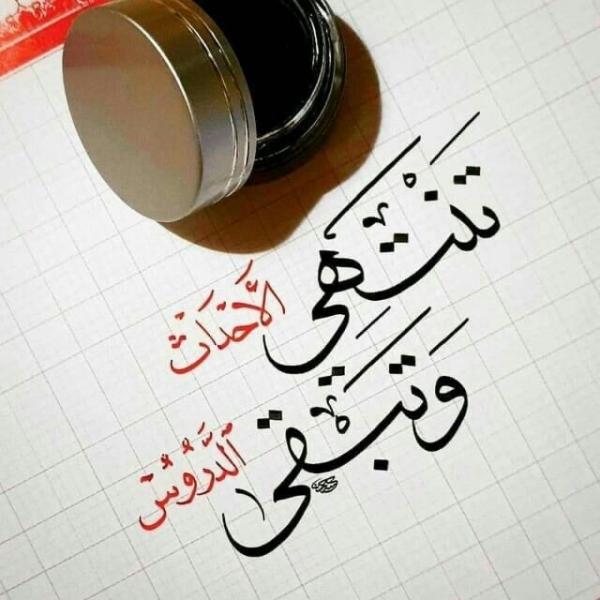 تَنْتَهِي الأَحْدَاثُ
وَتَبْقَى ٱلدُّرُوسُ